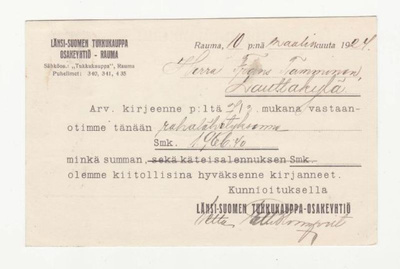 LÄNSI-SUOMEN TUKKUKAUPPA
OSAKEYHTIÖ - RAUMA
Sähköos.: „Tukkukauppa”, Rauma
Puhelimet: 340, 341, 4 39
Rauma, 10 p:nä maaliskuuta 1924.
Herra Frans Tamminen,
Lauttakylä
Arv. kirjeenne p:ltä mukana vastaan-
otimme tänään rahalähetyksenne
Smk. 1966:40
minkä summan, sekä käteisalennuksen Smk.
olemme kiitollisina hyväksenne kirjanneet.
Kunnioituksella
LÄNSI-SUOMEN TUKKUKAUPPA-OSAKEYHTIÖ